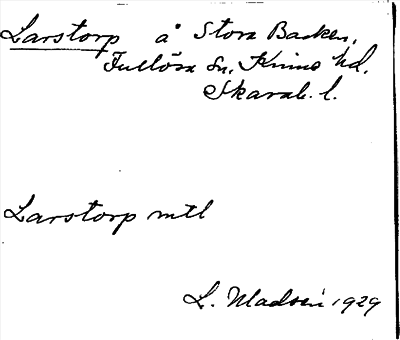 Larstorp å Stora Backen,
Fullösa Sn, Kinne hd.
Skarab. l.
Larstorp mtl
L. Madsén 1929